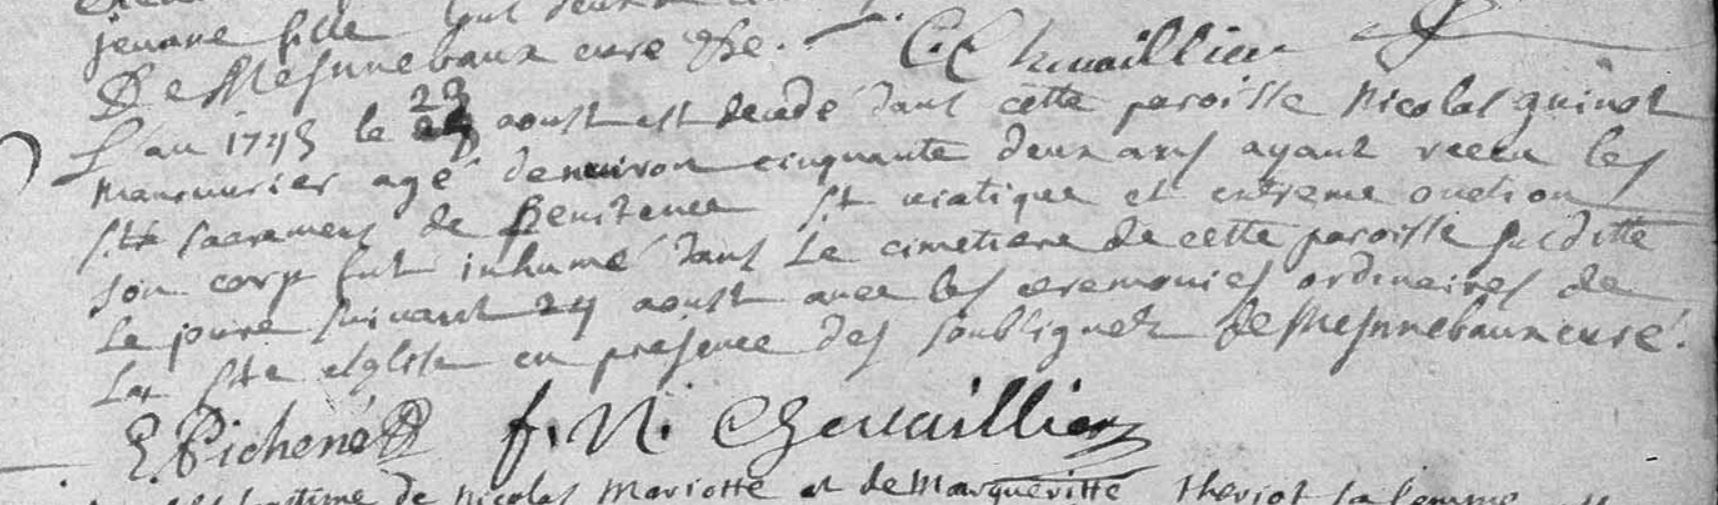 jeunne fille
De Mesnnebaux cure &c. C. Chevaillier
L'an 1745 le 23 aoust est decedé dans cette paroisse Nicolas guinot
manouvrier agé denuiron cinquante deux ans ayant receu les
sts sacremens de Penitence st viatique et extreme onction
son corp fut inhumé dans Le cimetiere de cette paroisse susditte
Le joure suivant 24 aoust avec les ceremonies ordinaires de
La ste esglise en presence des soubsignez De Mesnnebaux curé.
E Pichené f. N. Chevaillier
de Nicolas Mariotte et de Margueritte theriot sa femme